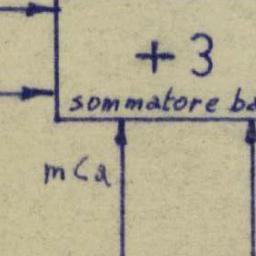 +3
sommatore ba
m<a